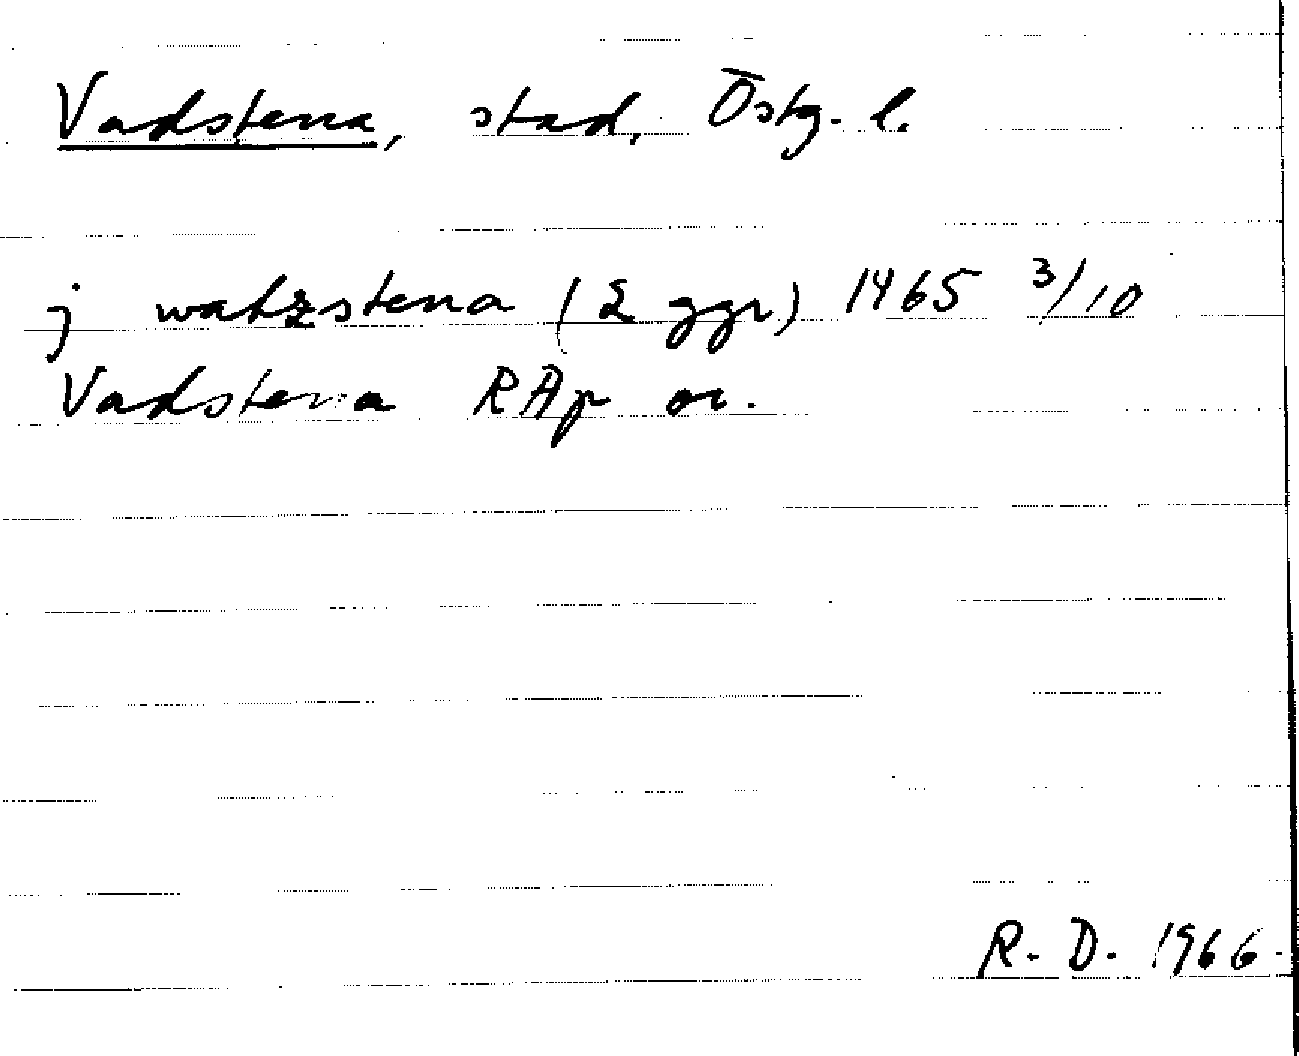 Vadstena, stad, Östg. l.
j watzstena (2 ggr) 1465 3/10
Vadstena RAp or.
R. D. 1966.